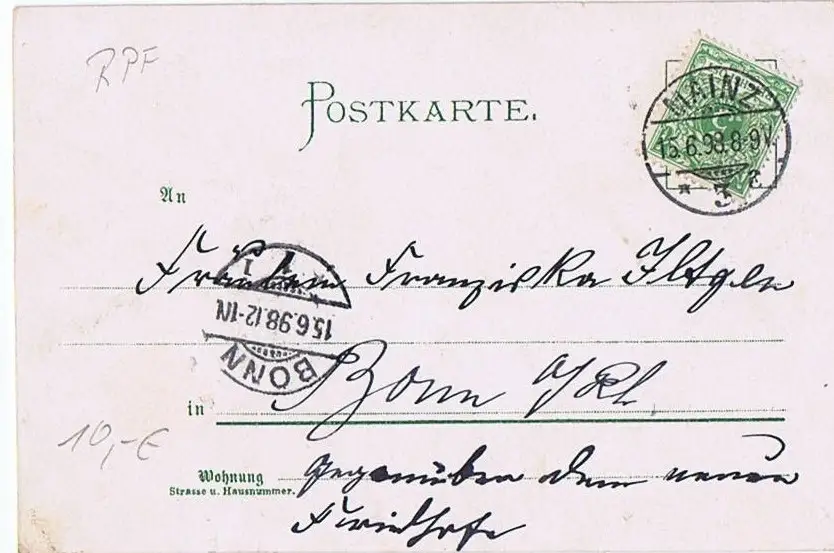 RPF
POSTKARTE.
MAINZ
15.6.98.8-9V.
* 3 a
An
Fräulein Franziska Iltgen
1 1
15.6.98.12-1N
BONN
in Bonn a/Rh
10,-€
Wohnung gegenüber dem neuen
Strasse u. Hausnummer.
Friedhofe